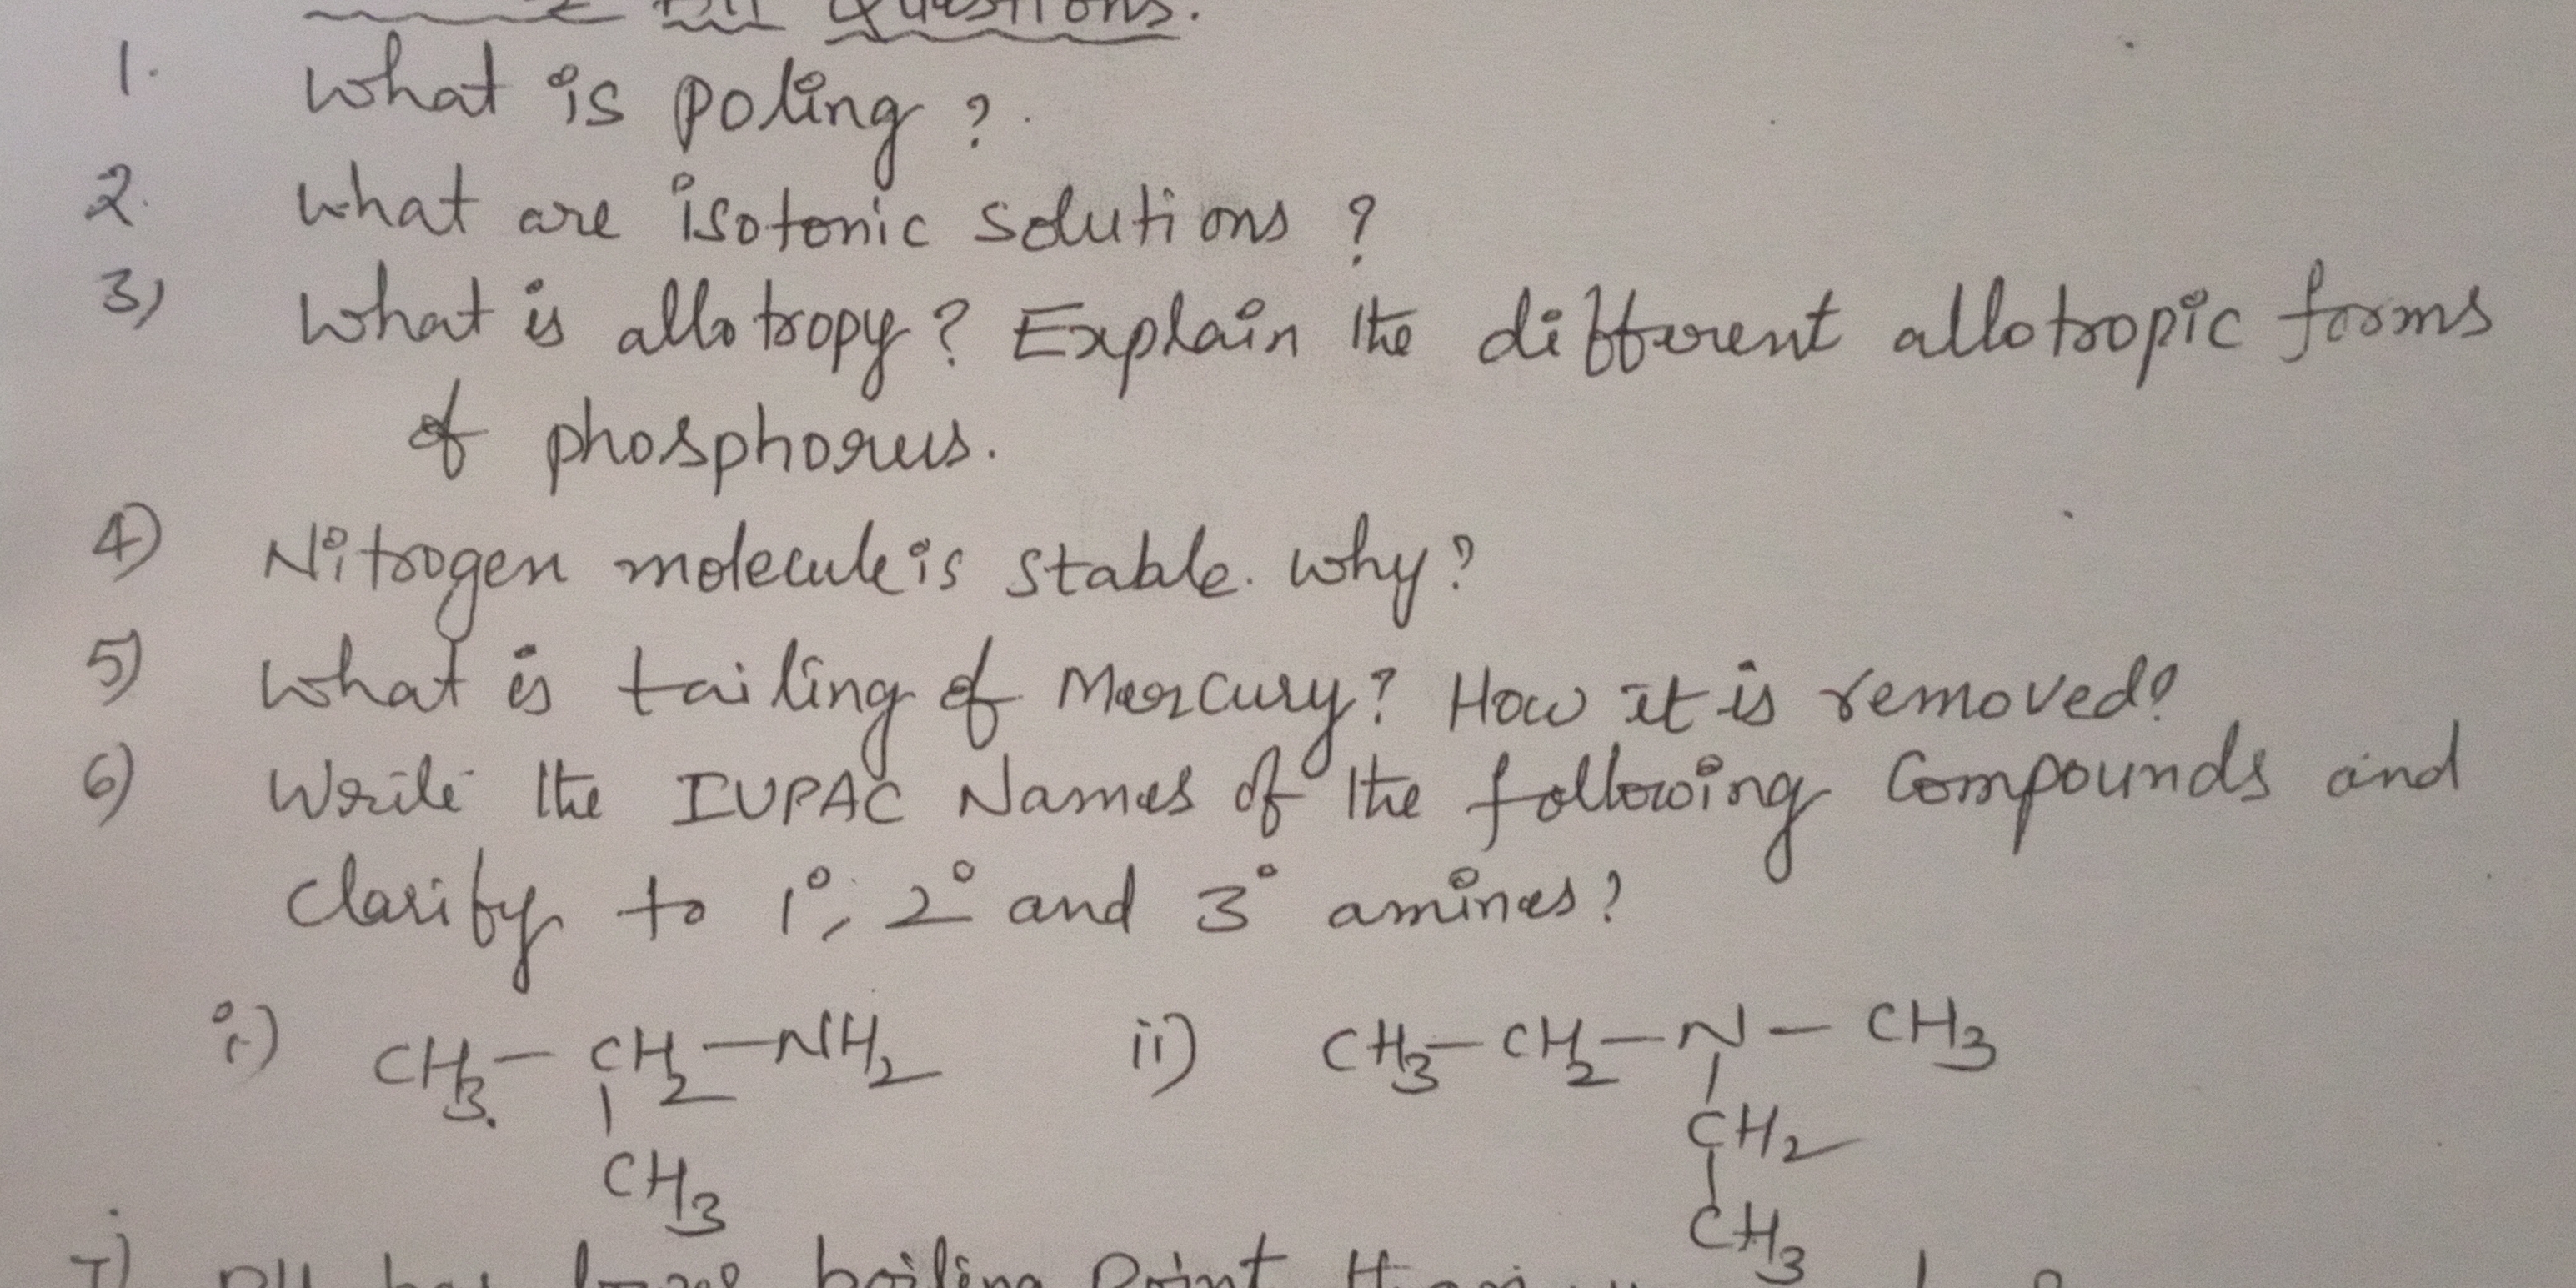 All Questions.
1. What is poling ?
2. What are isotonic solutions ?
3) What is allotropy? Explain the different allotropic forms
of phosphorus.
4) Nitrogen molecule is stable. Why?
5) What is tailing of Mercury? How it is removed?
6) Write the IUPAC Names of the following Compounds and
Clarify to 1°, 2° and 3° amines?
i) CH3 - CH2 - NH2 ii) CH3 - CH2 - N - CH3
CH2
CH3
CH3
7) has boiling Point